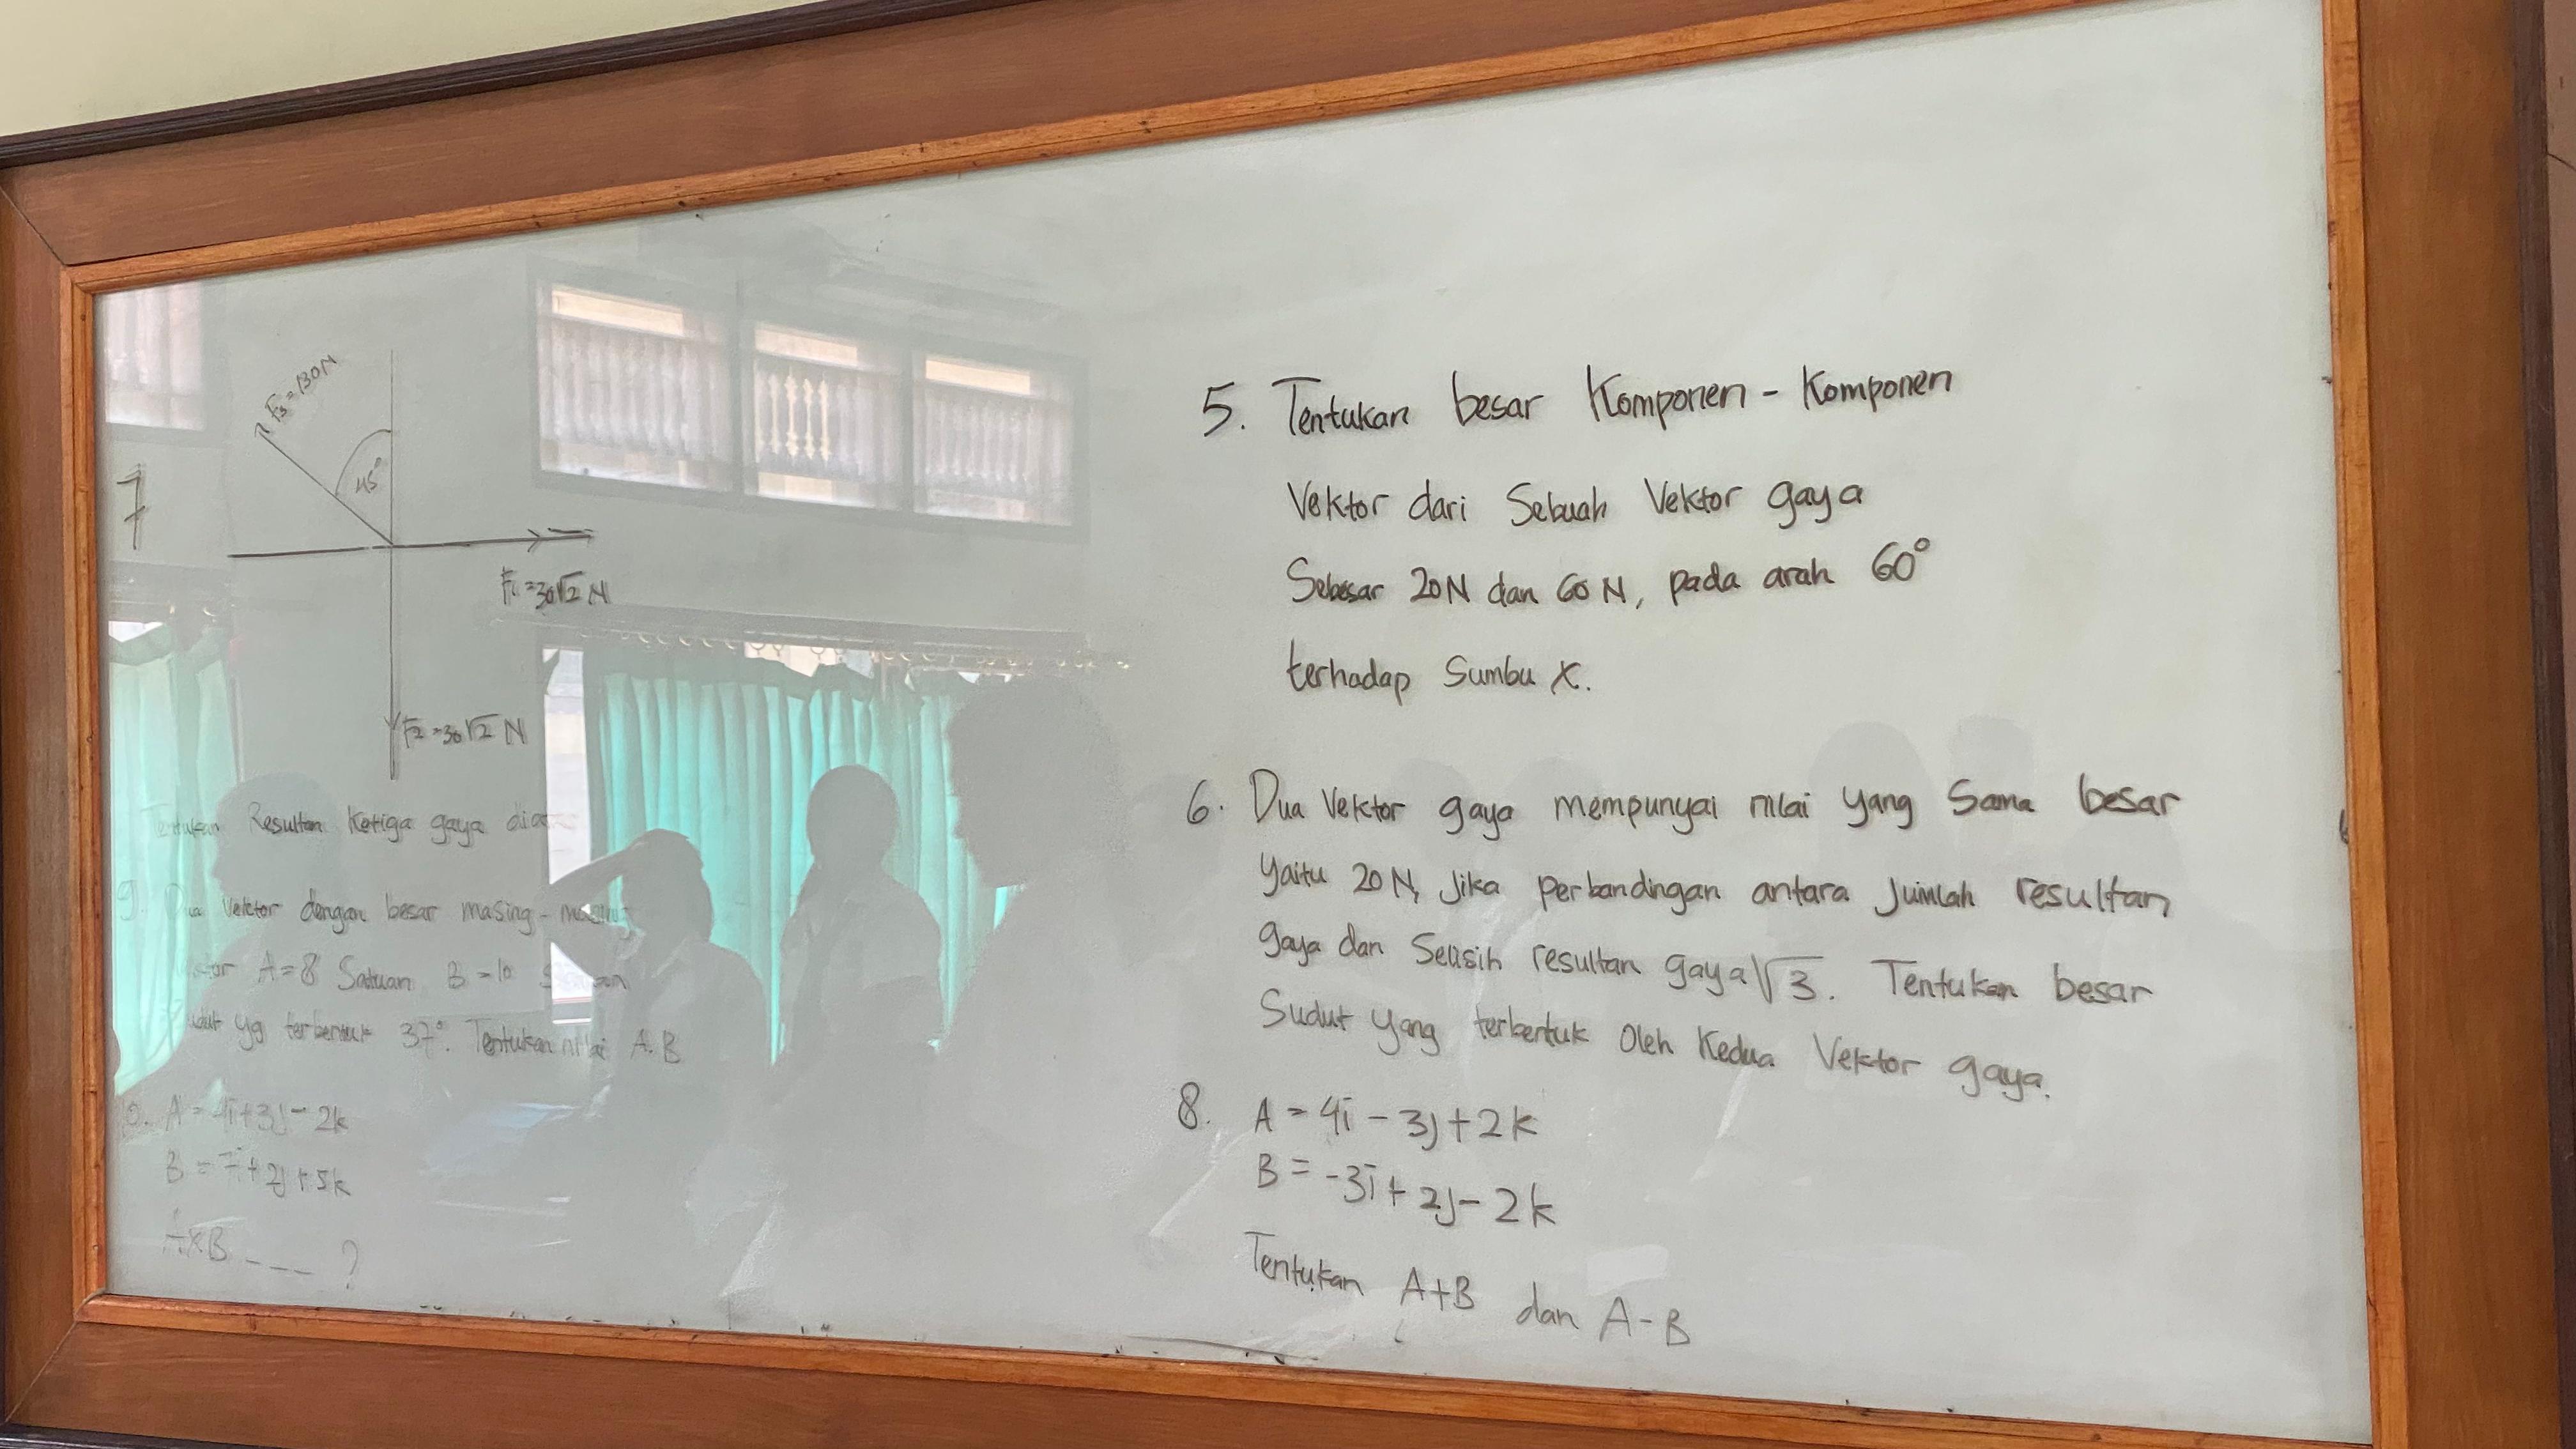 7
F3 = 130 N
45°
F1 = 30√2 N
F2 = 30√2 N
Tentukan Resultan Ketiga gaya
9. Dua Vektor dengan besar masing-masing
A = 8 Satuan B = 10
yg terbentuk 37°. Tentukan nilai A.B
A = 4i + 3j - 2k
B = 7i + 2j + 5k
A×B ---- ?
5. Tentukan besar Komponen - Komponen
Vektor dari Sebuah Vektor gaya
Sebesar 20N dan 60 N, pada arah 60°
terhadap Sumbu X.
6. Dua Vektor gaya mempunyai nilai yang Sama besar
yaitu 20 N, Jika perbandingan antara Jumlah resultan
gaya dan Selisih resultan gaya √3. Tentukan besar
Sudut yang terbentuk Oleh Kedua Vektor gaya.
8. A = 4i - 3j + 2k
B = -3i + 2j - 2k
Tentukan A+B dan A-B